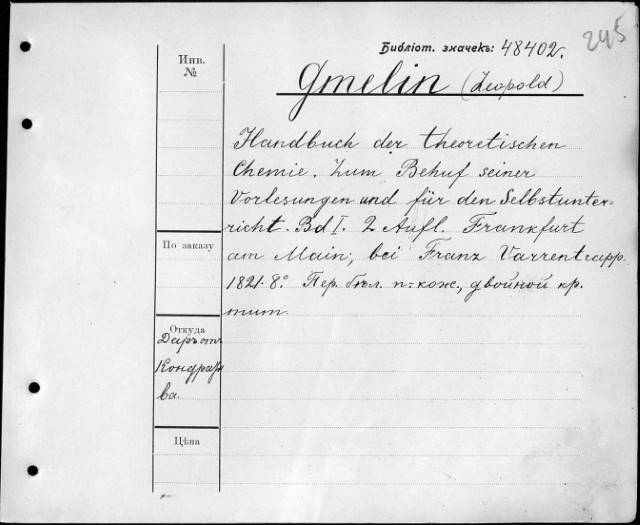 245
Библіот. значекъ: 48402.
Инв.
№
Gmelin (Leopold)
Handbuch der theoretischen
Chemie. Zum Behuf seiner
Vorlesungen und für den Selbstunter-
richt. Bd I. 2 Aufl. Frankfurt
am Main, bei Franz Varrentrapp.
1821. 8.° Пер. бѣл. п.-кож., двойной кр.
тит.
По заказу
Откуда
Даръ от
Кондрать
ва.
Цѣна